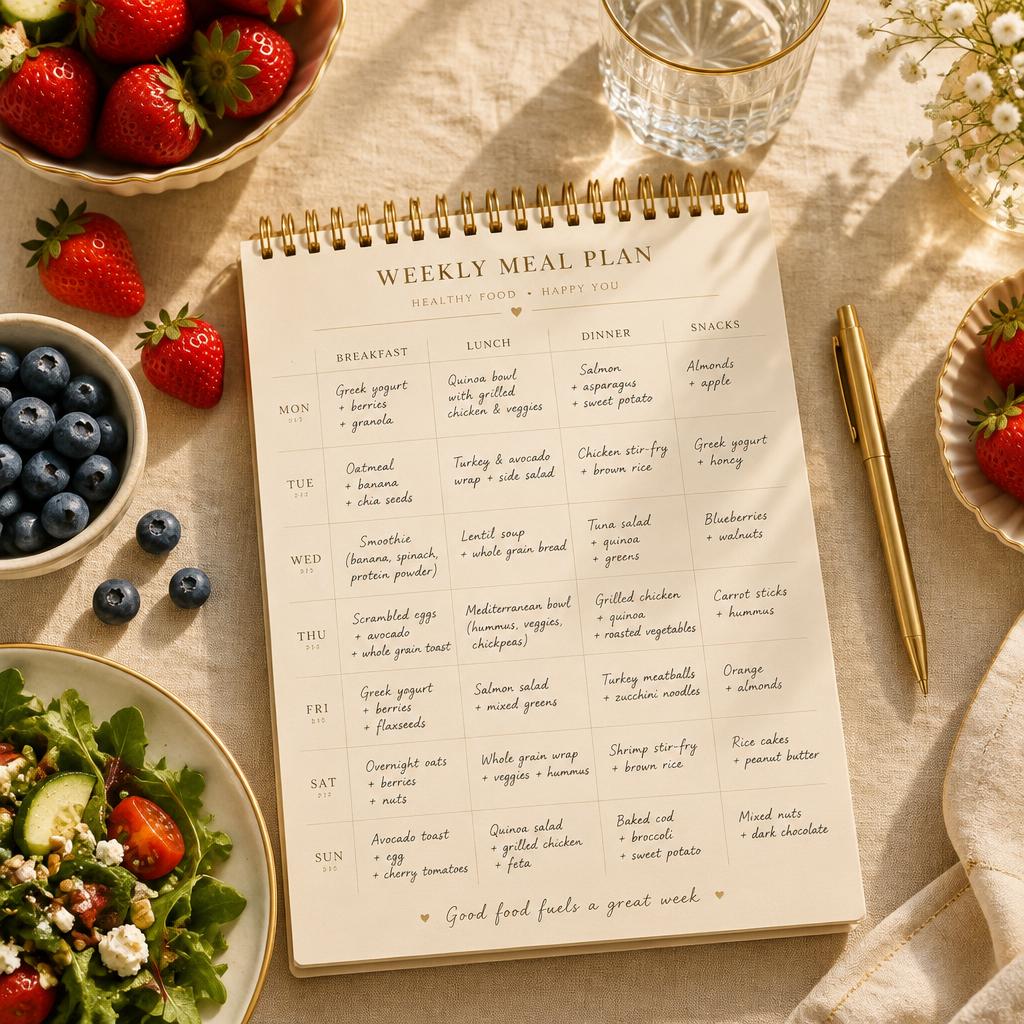 WEEKLY MEAL PLAN
HEALTHY FOOD • HAPPY YOU
BREAKFAST LUNCH DINNER SNACKS
MON
Greek yogurt
+ berries
+ granola
Quinoa bowl
with grilled
chicken & veggies
Salmon
+ asparagus
+ sweet potato
Almonds
+ apple
TUE
Oatmeal
+ banana
+ chia seeds
Turkey & avocado
wrap + side salad
Chicken stir-fry
+ brown rice
Greek yogurt
+ honey
WED
Smoothie
(banana, spinach,
protein powder)
Lentil soup
+ whole grain bread
Tuna salad
+ quinoa
+ greens
Blueberries
+ walnuts
THU
Scrambled eggs
+ avocado
+ whole grain toast
Mediterranean bowl
(hummus, veggies,
chickpeas)
Grilled chicken
+ quinoa
+ roasted vegetables
Carrot sticks
+ hummus
FRI
Greek yogurt
+ berries
+ flaxseeds
Salmon salad
+ mixed greens
Turkey meatballs
+ zucchini noodles
Orange
+ almonds
SAT
Overnight oats
+ berries
+ nuts
Whole grain wrap
+ veggies + hummus
Shrimp stir-fry
+ brown rice
Rice cakes
+ peanut butter
SUN
Avocado toast
+ egg
+ cherry tomatoes
Quinoa salad
+ grilled chicken
+ feta
Baked cod
+ broccoli
+ sweet potato
Mixed nuts
+ dark chocolate
Good food fuels a great week